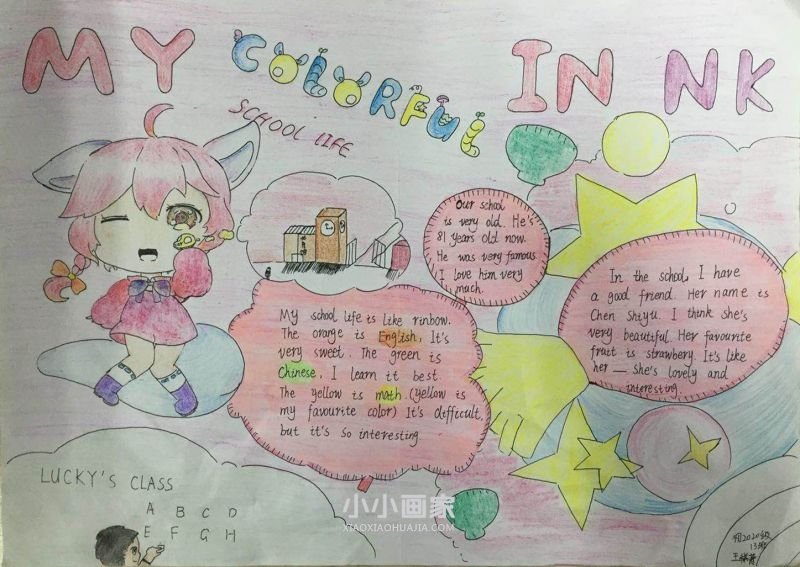 MY COLORFUL IN NK
SCHOOL LIFE
Our school
is very old. He's
81 years old now.
He was very famous
I love him very
much.
In the school, I have
a good friend. Her name is
Chen Shiyu. I think she's
very beautiful. Her favourite
fruit is strawberry. It's like
her — she's lovely and
interesting.
My school life is like rinbow.
The orange is English. It's
very sweet. The green is
Chinese. I learn it best.
The yellow is math. (yellow is
my favourite color) It's difficult,
but it's so interesting
LUCKY'S CLASS
A B C D
E F G H
小小画家
XIAOXIAOHUAJIA.COM
初2020级
13班